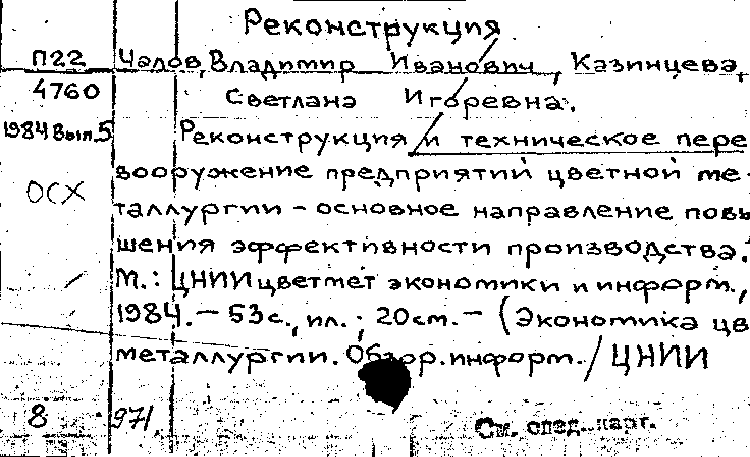 Реконструкция
П22 Чалов, Владимир Иванович, Казинцева,
4760 Светлана Игоревна.
1984 Вып.5 Реконструкция и техническое пере
вооружение предприятий цветной ме-
ОСХ
таллургии – основное направление повы
шения эффективности производства.
М.: ЦНИИцветмет экономики и информ.,
1984. – 53с., ил.; 20см. – (Экономика цв
металлургии. Обзор. информ. / ЦНИИ
8 971 См. след. карт.